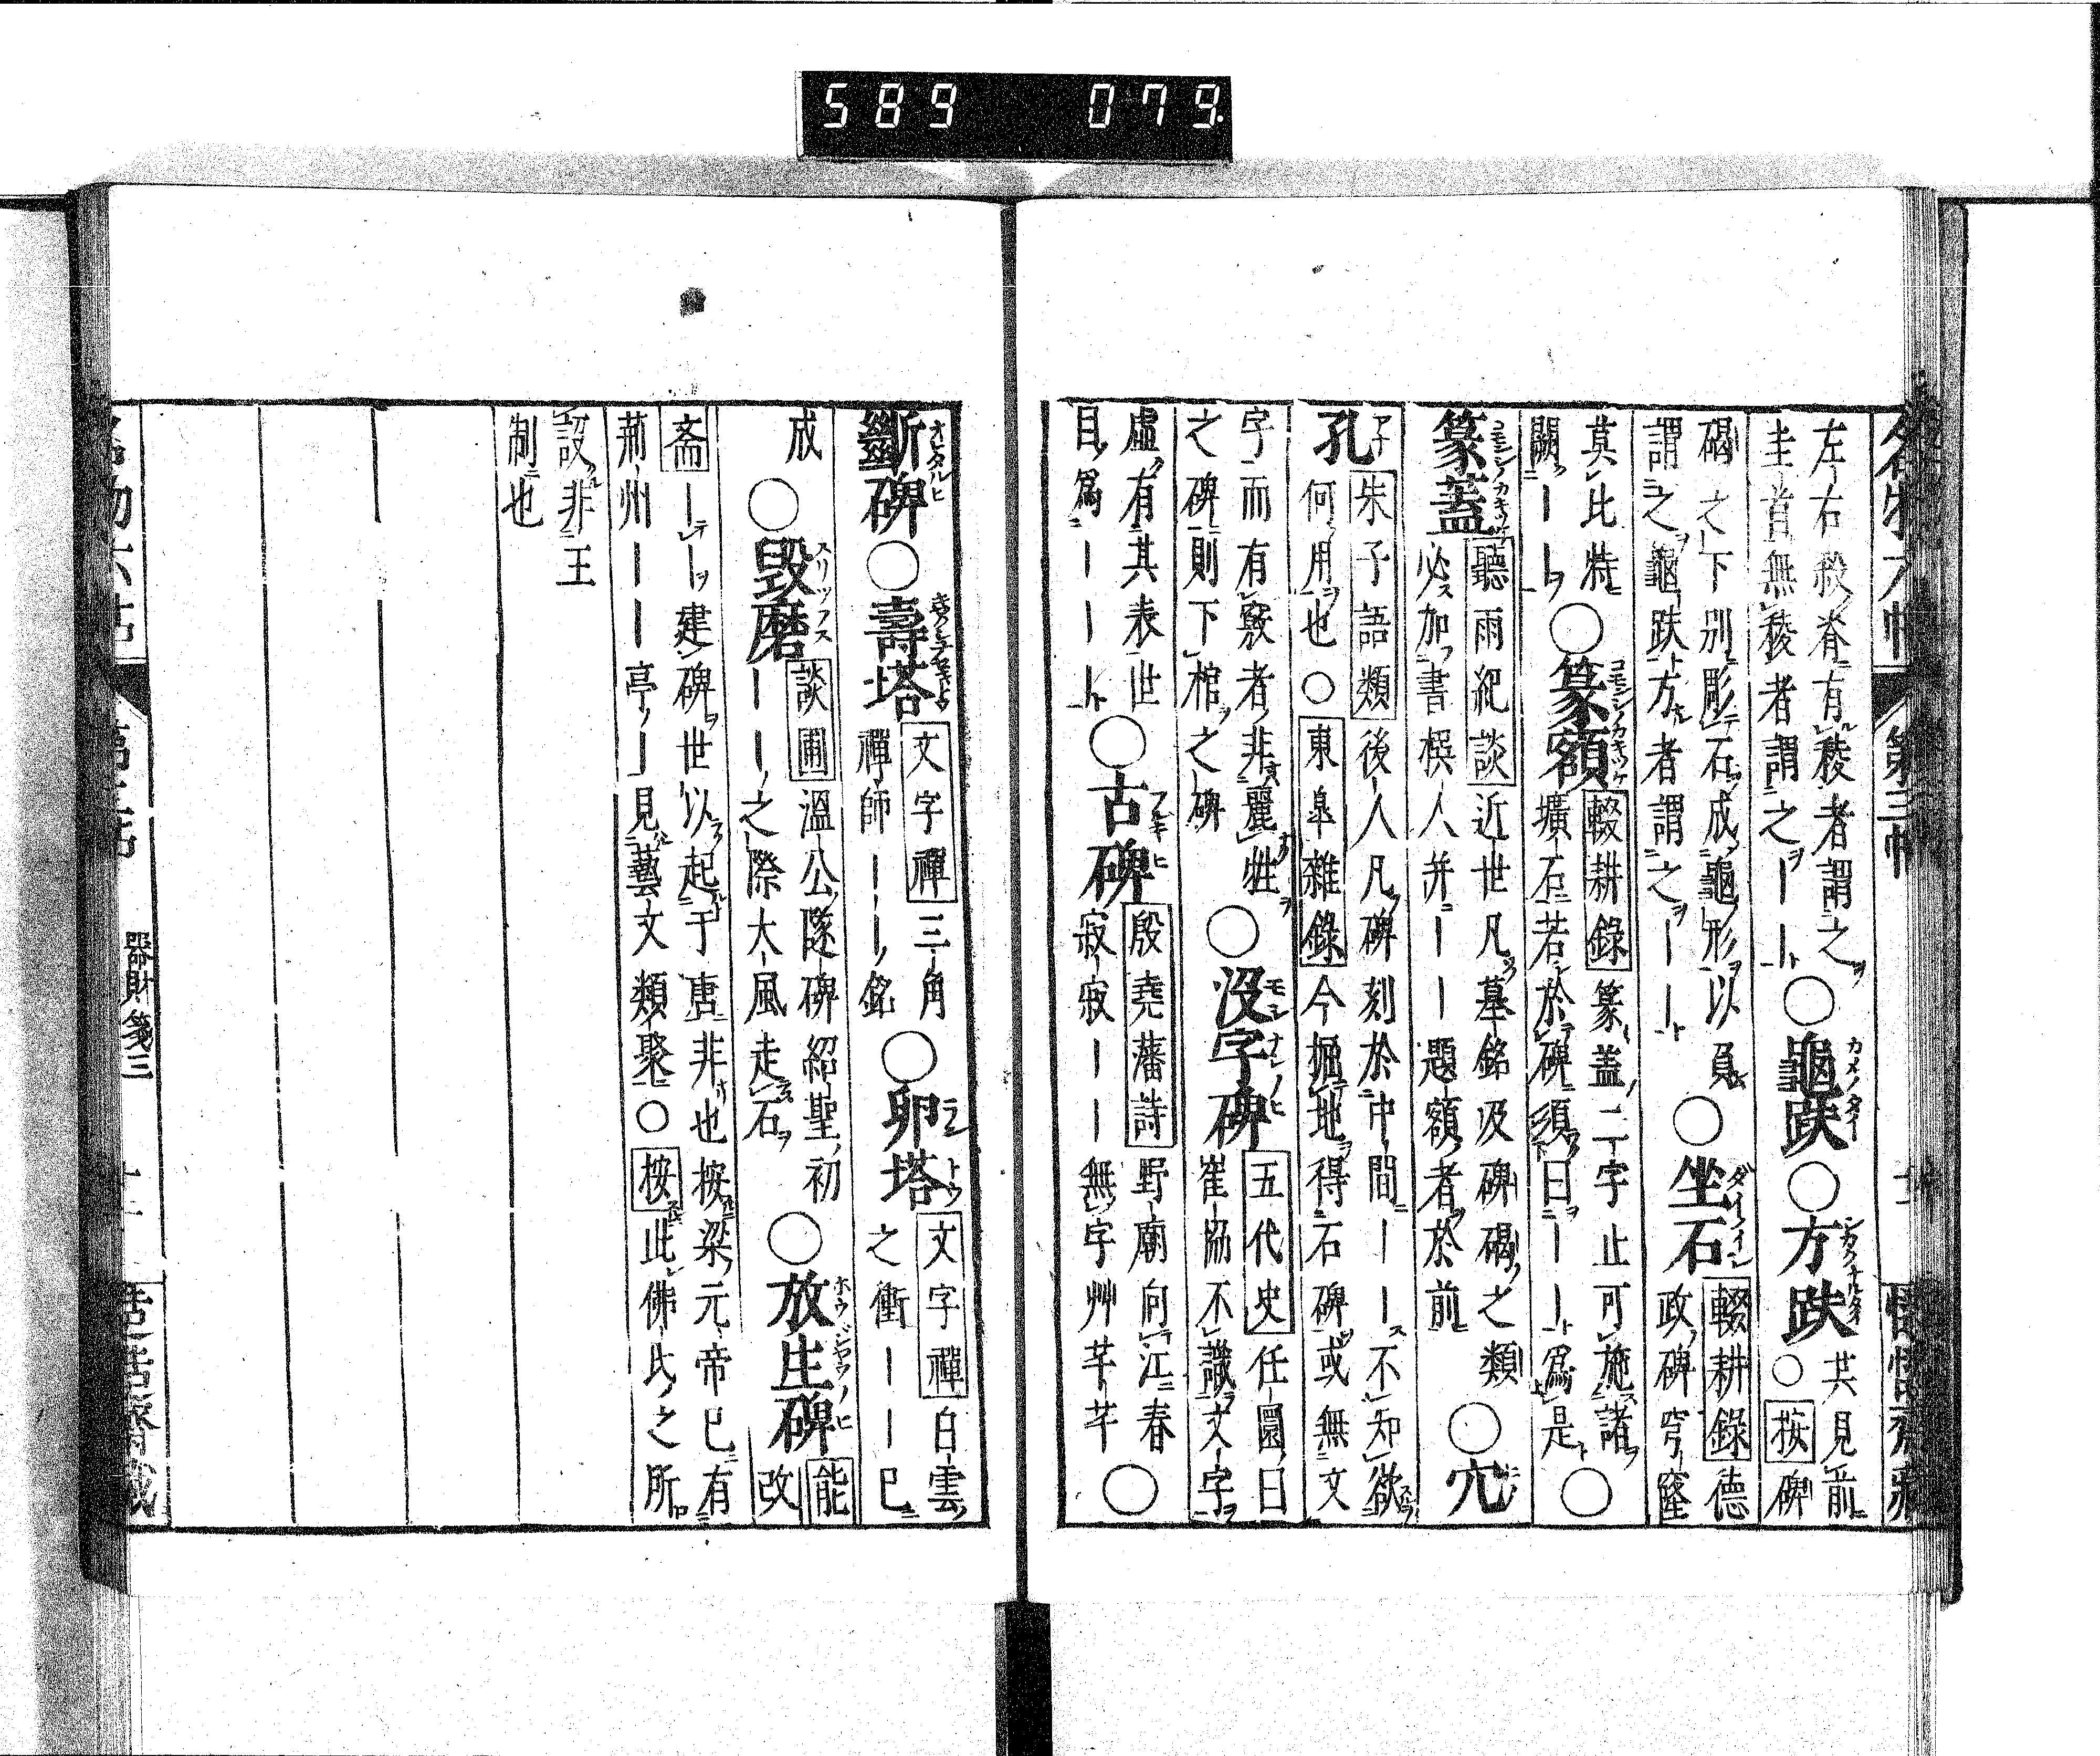 名物六帖 第三帖
左右殺脊有稜者謂之
圭首無稜者謂之――
○龜趺○方趺○
共見前
按碑
碣之下別彫石成龜形以負
謂之龜趺方者謂之――
○坐石
輟耕錄德
政碑穹窿
莫比特
闕――
○篆額
輟耕錄篆蓋二字止可施諸
壙石若於碑須曰――爲是
○
篆蓋
聽雨紀談近世凡墓銘及碑碣之類
必加書撰人并――題額者於前
○穴
孔
朱子語類後人凡碑刻於中間――不知欲
何用也○東皐雜錄今掘地得石碑或無文
字而有竅者非麗牲
之碑則下棺之碑
○沒字碑
五代史任圜曰
崔協不識文字
虛有其表世
目爲―――
○古碑
殷堯藩詩野廟向江春
寂寂――無字艸芊芊
○
斷碑○壽塔
文字禪三角
禪師――銘
○卵塔
文字禪白雲
之衝――已
成
○毀磨
談圃溫公隧碑紹聖初
――之際大風走石
○放生碑
能
改
齋――建碑世以起于唐非也按梁元帝已有
荊州――亭―見藝文類聚○按此佛氏之所
設非王
制也
名物六帖 第三帖 器財箋三
589 079